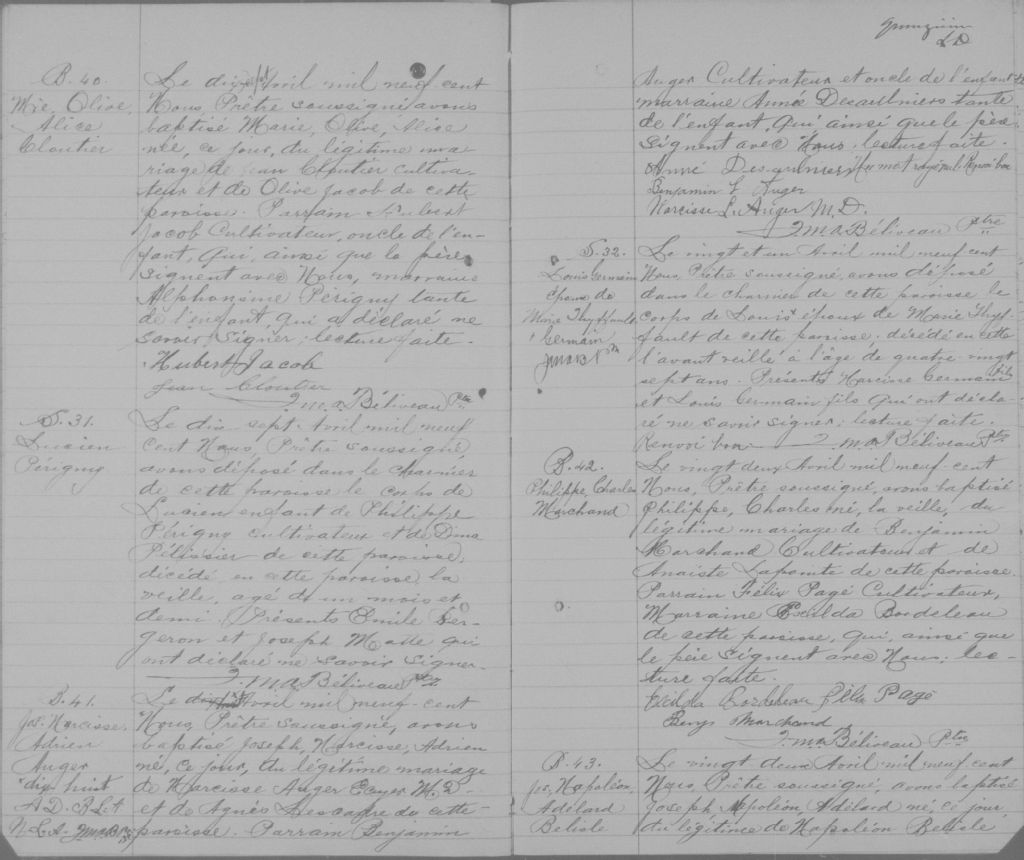 B. 40.
Mie, Olive,
Alice
Cloutier
Le dix Avril mil neuf cent
Nous, Prêtre soussigné avons
baptisé Marie, Olive, Alice
née, ce jour, du légitime ma-
riage de Jean Cloutier cultiva-
teur et de Olive Jacob de cette
paroisse. Parrain Hubert
Jacob Cultivateur, oncle de l'en-
fant, qui, ainsi que le père
signent avec Nous, marraine
Alphonsine Périgny tante
de l'enfant qui a déclaré ne
savoir signer; lecture faite.
Hubert Jacob
Jean Cloutier
J. M. A. Béliveau Ptre
S. 31.
Lucien
Périgny
Le dix sept Avril mil neuf
cent Nous, Prêtre soussigné,
avons déposé dans le charnier
de cette paroisse le corps de
Lucien enfant de Philippe
Périgny cultivateur et de Dina
Pélissier de cette paroisse,
décédé en cette paroisse la
veille, agé d'un mois et
demi. Présents Emile Ber-
geron et Joseph Matte qui
ont déclaré ne savoir signer.
J. M. A. Béliveau Ptre
B. 41.
Jos. Narcisse
Adrien
Auger
dix huit
A D. B. L. A
N. L. A.
Le Avril mil neuf cent
Nous, Prêtre soussigné, avons
baptisé Joseph, Narcisse, Adrien
né, ce jour, du légitime mariage
de Narcisse Auger Ecuyer M. D.
et de Agnès de cette
paroisse. Parrain Benjamin
Auger Cultivateur et oncle de l'enfant
marraine Année Desaulniers tante
de l'enfant, qui ainsi que le père
signent avec Nous; lecture faite.
Anné Desaulniers
Benjamin L Auger
Narcisse L. Auger M. D.
J. M. A Béliveau Ptre
S. 32.
Louis Germain
époux de
Marie
Germain
Le vingt et un Avril mil neuf cent
Nous, Prêtre soussigné, avons déposé
dans le charnier de cette paroisse le
corps de Louis époux de Marie
de cette paroisse, décédé en cette
l'avant veille à l'âge de quatre-vingt
sept ans. Présents Narcisse Germain fils
et Louis Germain fils qui ont décla-
ré ne savoir signer; lecture faite.
Renvoi bon J. M. A Béliveau Ptre
B. 42.
Philippe, Charles
Marchand
Le vingt deux Avril mil neuf cent
Nous, Prêtre soussigné, avons baptisé
Philippe, Charles né, la veille, du
légitime mariage de Benjamin
Marchand Cultivateur et de
Anaïste Lapointe de cette paroisse.
Parrain Félix Pagé Cultivateur,
Marraine Exilda Bordeleau
de cette paroisse, qui, ainsi que
le père signent avec Nous; lec-
ture faite.
Exilda Bordeleau Félix Pagé
Benj Marchand
J. M. A. Béliveau Ptre
B. 43.
Jos, Napoléon,
Adélard
Belisle
Le vingt deux Avril mil neuf cent
Nous, Prêtre soussigné, avons baptisé
Joseph Napoléon Adélard né, ce jour
du légitime de Napoléon Belisle